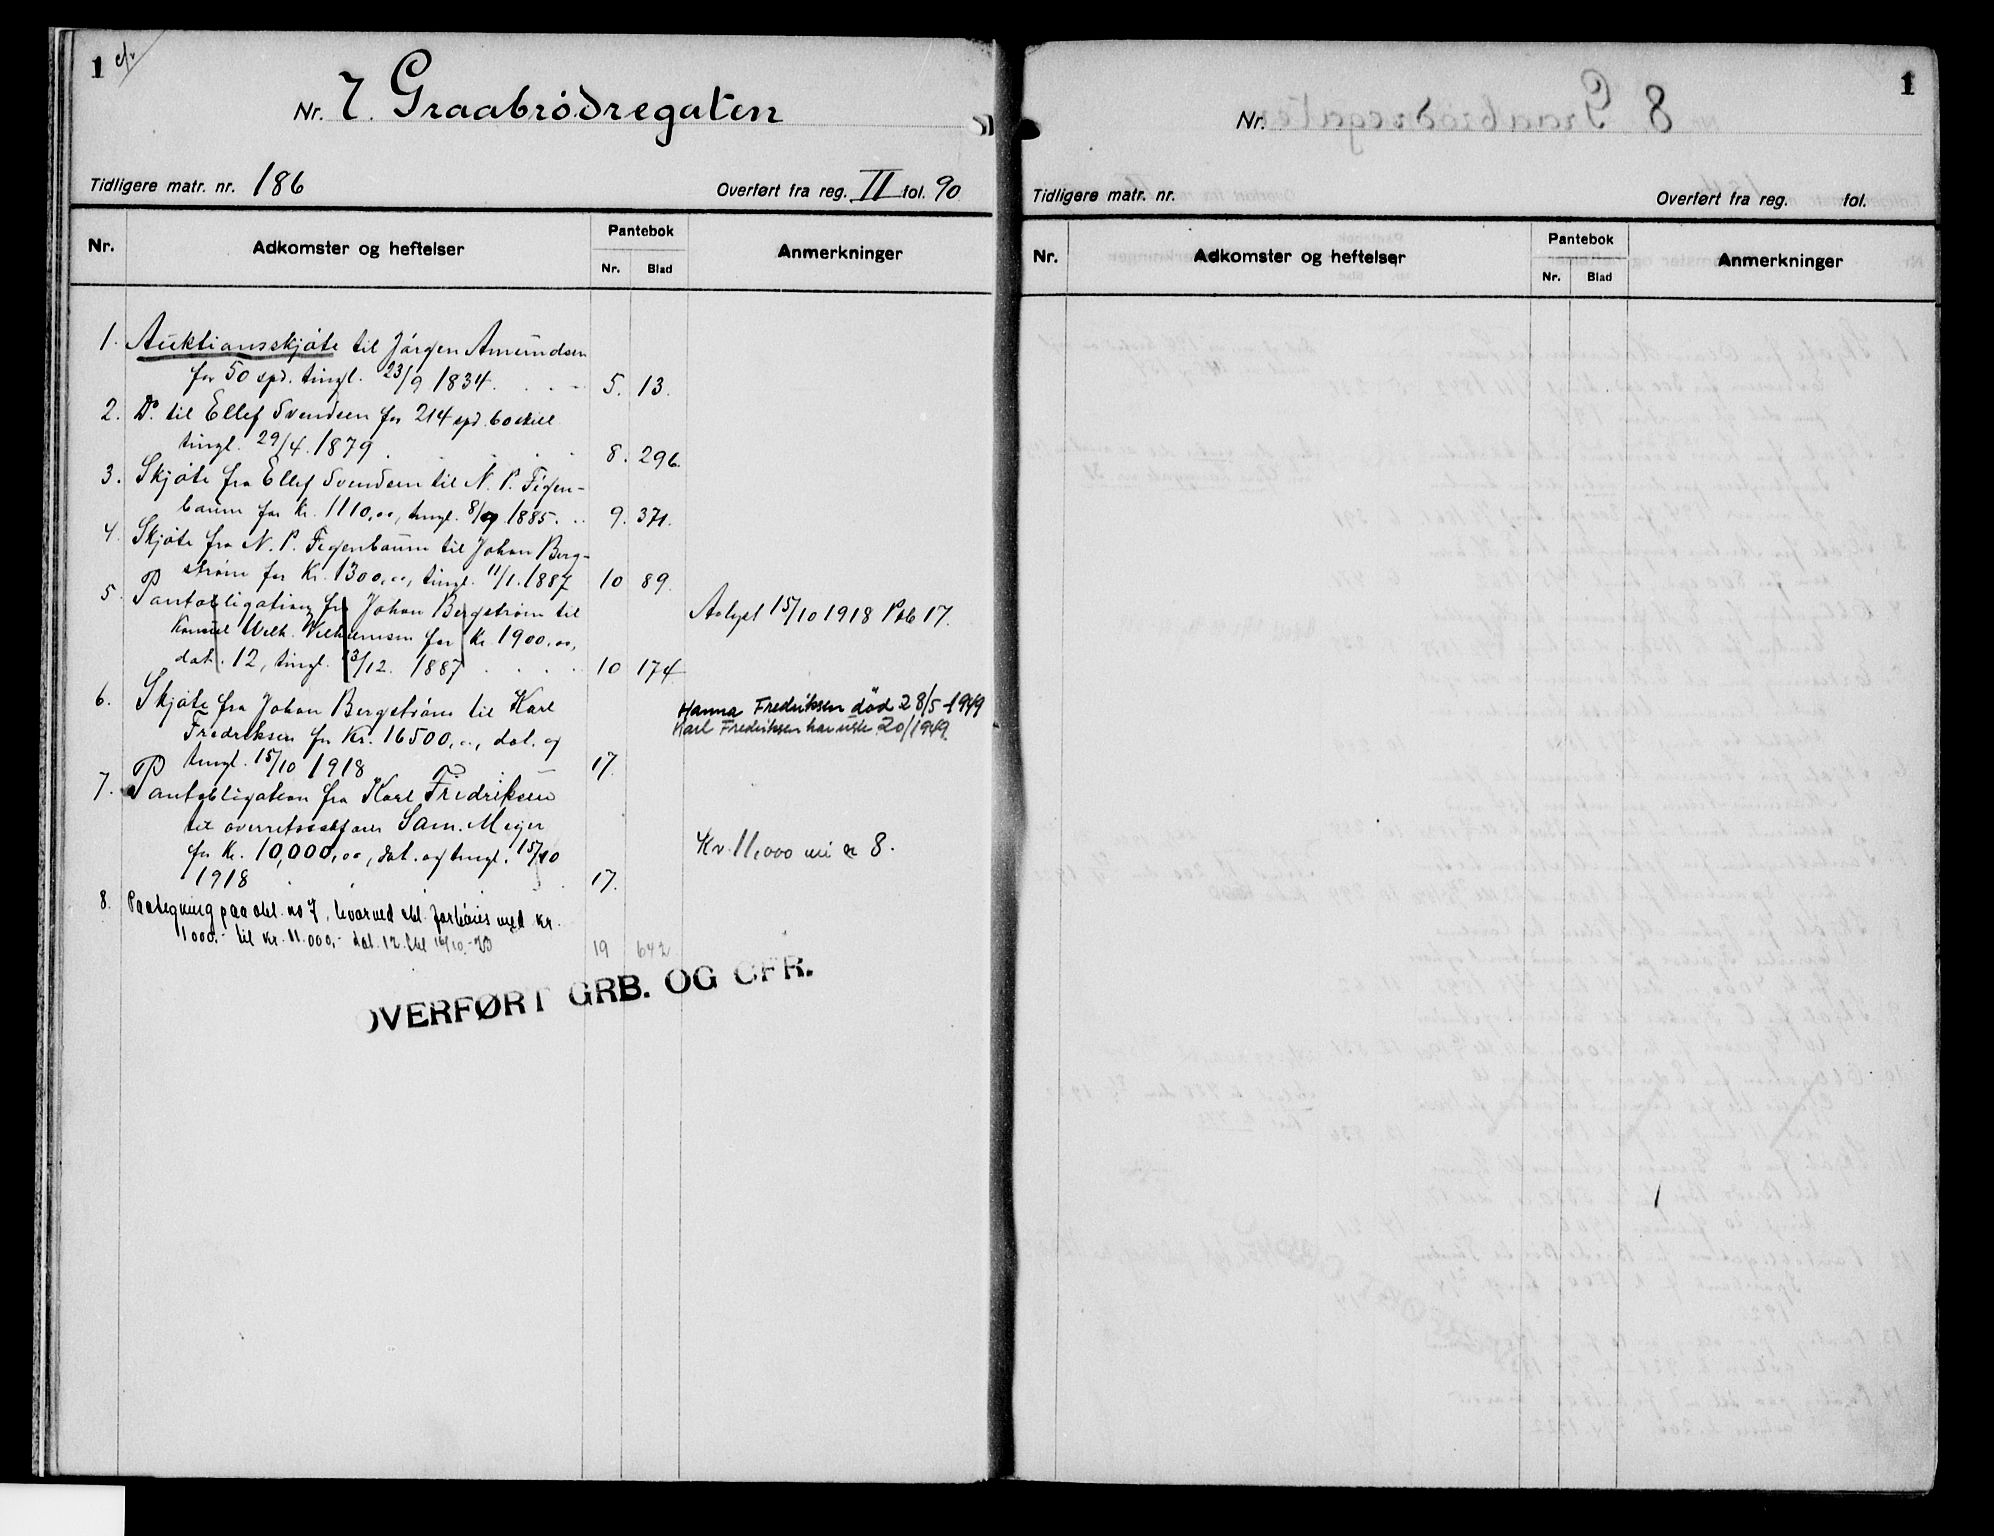 1 cfr
Nr. 7. Graabrødregaten
Tidligere matr. nr. 186 Overført fra reg. II fol. 90
Nr. Adkomster og heftelser Pantebok Anmerkninger
Nr. Blad
1. Auktionsskjøte til Jørgen Amundsen
for 50 spd. tingl. 23/9 1834. 5. 13.
2. Do. til Ellef Svendsen for 214 spd. 60 skill
tingl. 29/4. 1879. 8. 296.
3. Skjøte fra Ellef Svendsen til N. P. Figen-
baum for Kr. 1110,00, tingl. 8/9 1885. 9. 371.
4. Skjøte fra N. P. Figenbaum til Johan Berg-
strøm for Kr. 1300,00, tingl. 11/1. 1887 10 89.
5. Pantobligation fra Johan Bergstrøm til
Konsul Wilh. Wilhelmsen for Kr. 1900,00, Avlyst 15/10 1918 Pb 17.
dat. 12, tingl. 13/12. 1887 10 174
6. Skjøte fra Johan Bergstrøm til Karl Hanna Fredriksen død 28/5-1949
Fredriksen for Kr. 16500,00, dat. og Karl Fredriksen har uskifte 20/ 1949.
tingl. 15/10 1918 17.
7. Pantobligation fra Karl Fredriksen
til overretssakfører Sam. Meyer
for Kr. 10,000,00, dat. og tingl. 15/10 Kr. 11.000 8.
1918 17.
8. Paategning paa obl. no 7, hvorved obl. forhøies med kr.
1000,- til kr. 11.000,- dat. 12. tgl 16/10.-23 19 642
OVERFØRT GRB. OG CFR.
1
Nr.
Tidligere matr. nr. Overført fra reg. fol.
Nr. Adkomster og heftelser Pantebok Anmerkninger
Nr. Blad